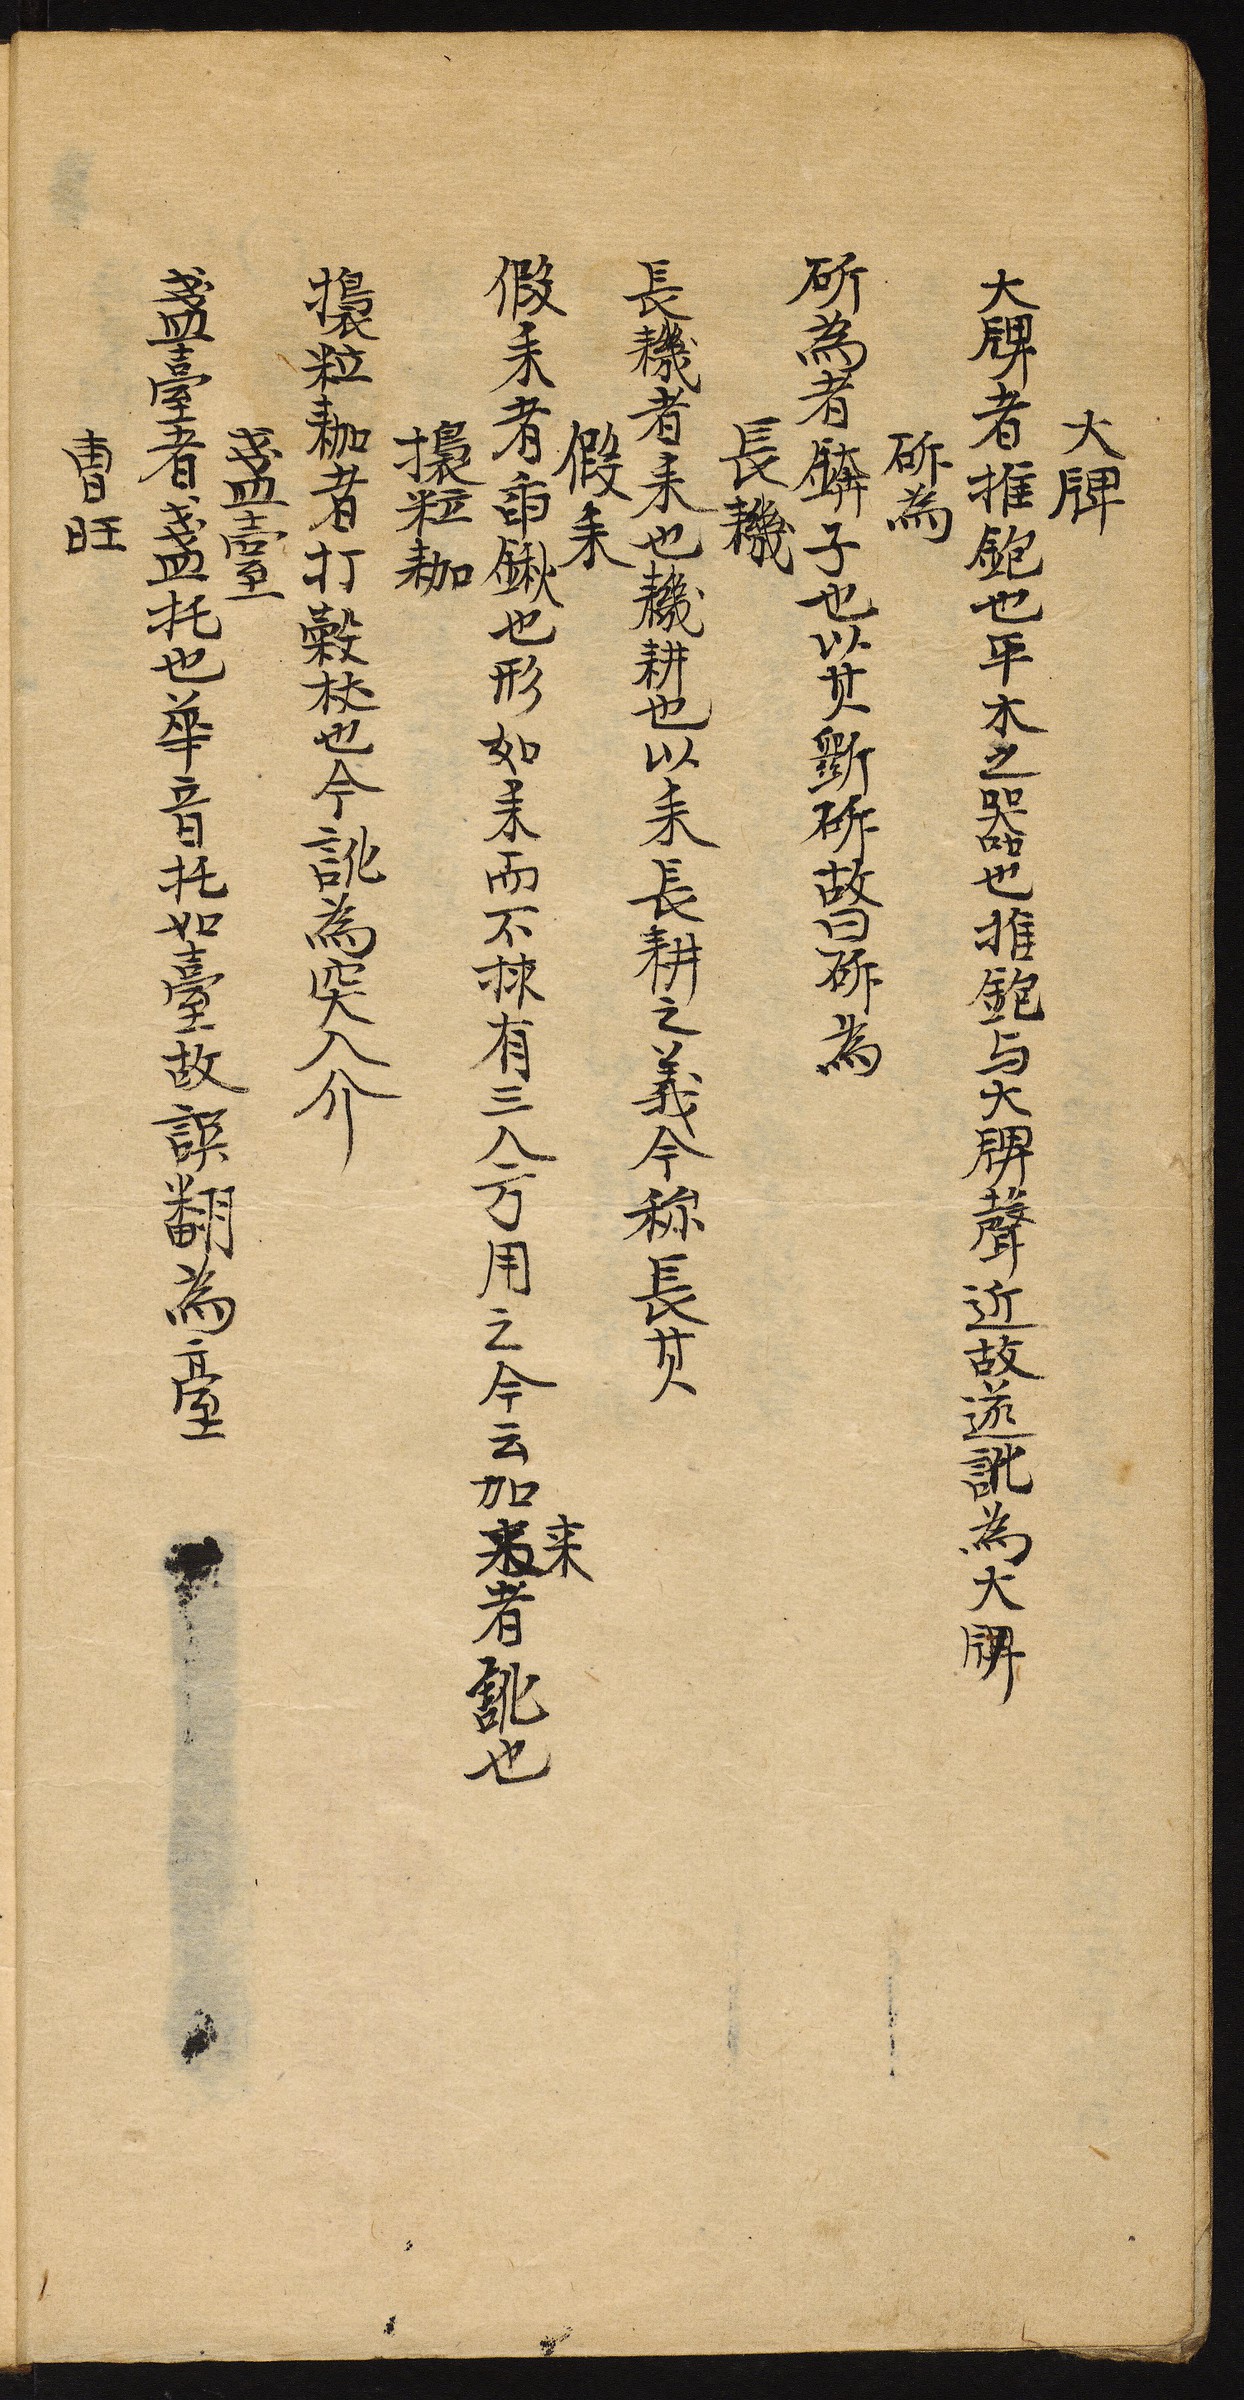 大牌
大牌者推鉋也平木之器也推鉋与大牌聲近故遂訛為大牌
斫為
斫為者錛子也以其斲斫故曰斫為
長耭
長耭者耒也耭耕也以耒長耕之義今称長其
假耒
假耒者臿鍬也形如耒而不捄有三人方用之今云加来者訛也
來
擐粒耞
擐粒耞者打穀杖也今訛為突入介
盞臺
盞臺者盞托也華音托如臺故誤翻為臺
曺旺